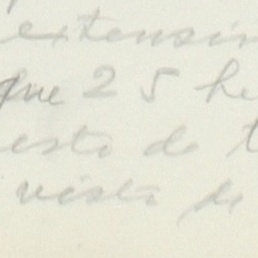 extensin
que 25 he
esto de t
vista de